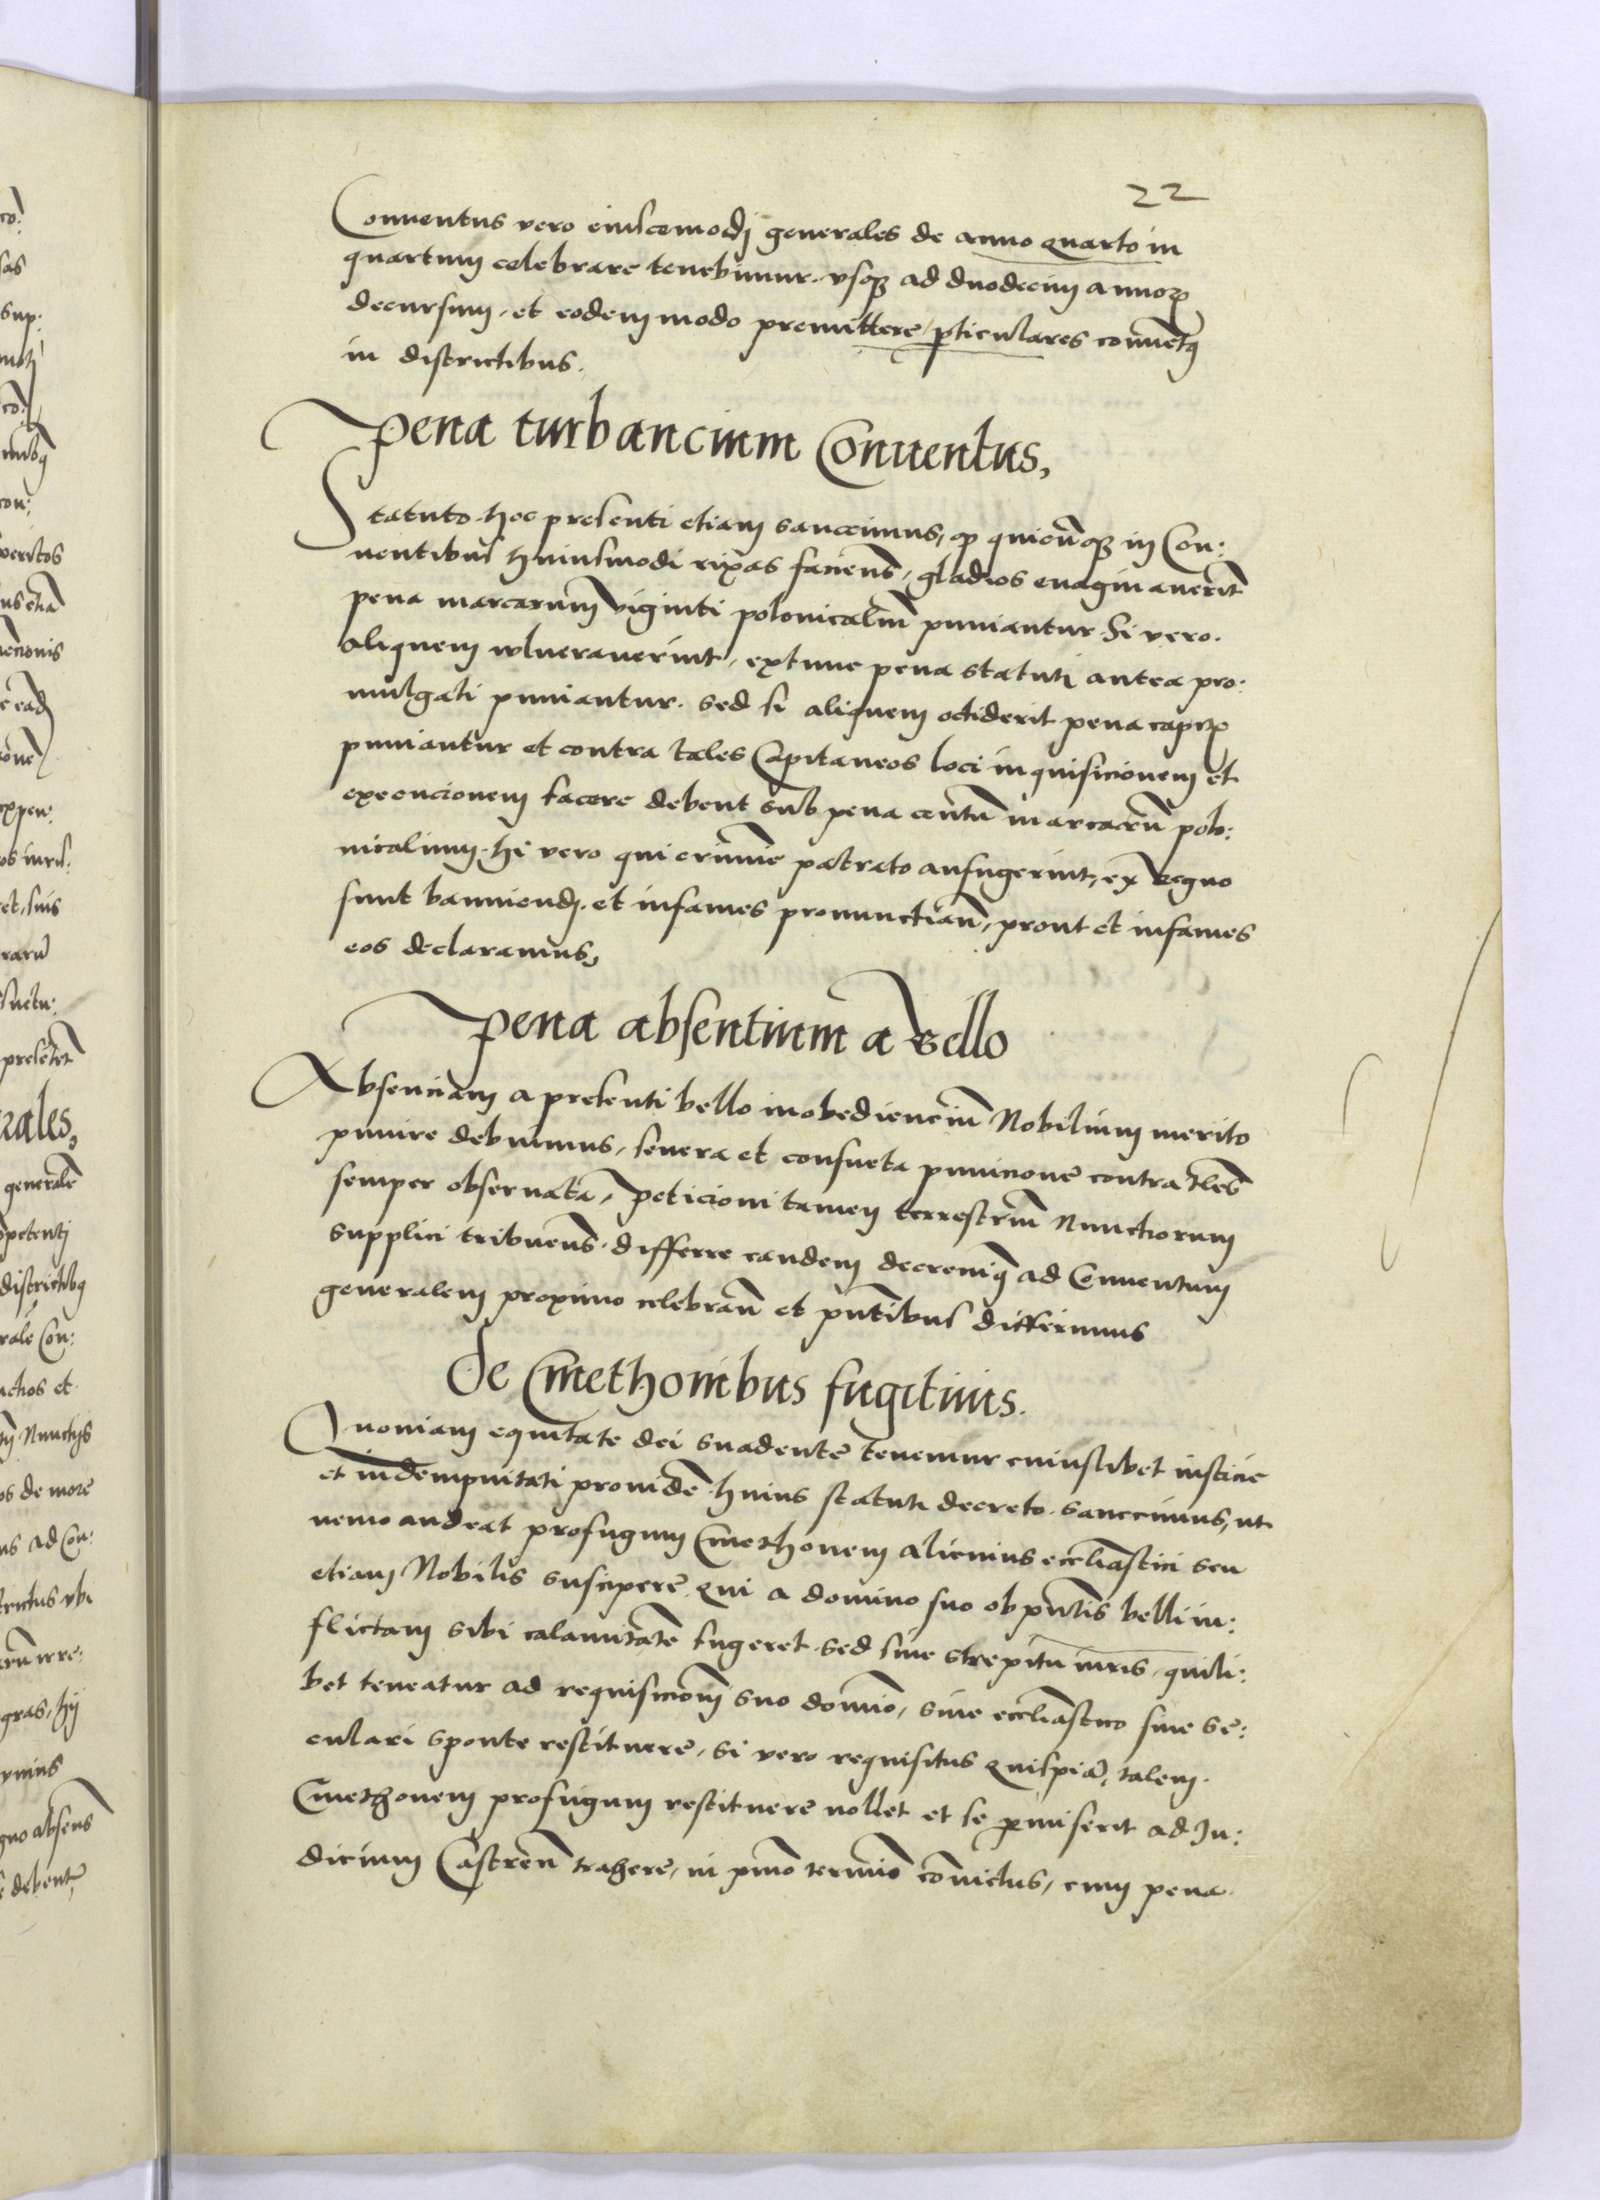 22
Conuentus vero eiuscemodj generales de anno quarto in
quartum celebrare tenebimur. vsqȝ ad duodecim annoꝝ
decursum. et eodem modo premittere ꝑticulares conuētꝰ
in districtibus.
Pena turbancium Conuentus,
Statuto hoc presenti etiam sanccimus, ꝙ quicūqȝ in Con:
uentibus huiusmodi rixas facienš, gladios euaginauerint
pena marcarum viginti polonicaliū puniantur. Si vero.
aliquem wlnerauerint, extunc pena statuti antea pro:
mulgati puniantur. sed si aliquem occiderit pena capitꝭ
puniantur et contra tales Capitaneos loci inquisicionem et
execucionem facere debent sub pena centū marcarū polo:
nicalium. Hi vero qui crimine patrato aufugerint, ex Regno
sunt banniendj. et infames pronunctiañ, prout et infames
eos declaramus,
Pena absentium a Bello
Absenciam a presenti bello inobediencium Nobilium merito
punire debuimus, seuera et consueta punicione contra tales
semper obseruata, peticioni tamen terrestriū Nunctiorum
supplici tribuenš. differre eandem decreuimꝰ ad Conuentum
generalem proximo celebrañ et pñtibus differimus
De Cmethonibus fugitiuis.
Quoniam equitate dei suadente tenemur cuiuslibet iusticie
et indempnitati prouidē. huius statuti decreto sanccimus, ut
nemo audeat profugum Cmethonem alicuius ecclīastici seu
etiam Nobilis suscipere qui a domino suo ob pñtis belli in:
flictam sibi calamitatē fugeret. sed sine strepitu iuris, quili:
bet teneatur ad requisicionē suo domino, siue ecclīastico siue se:
culari sponte restituere, si vero requisitus quispiā, talem.
Cmethonem profugum restituere nollet et se ꝑmiserit ad Iu:
dicium Castreñ trahere, in pmo termino cōuictus, cum pena